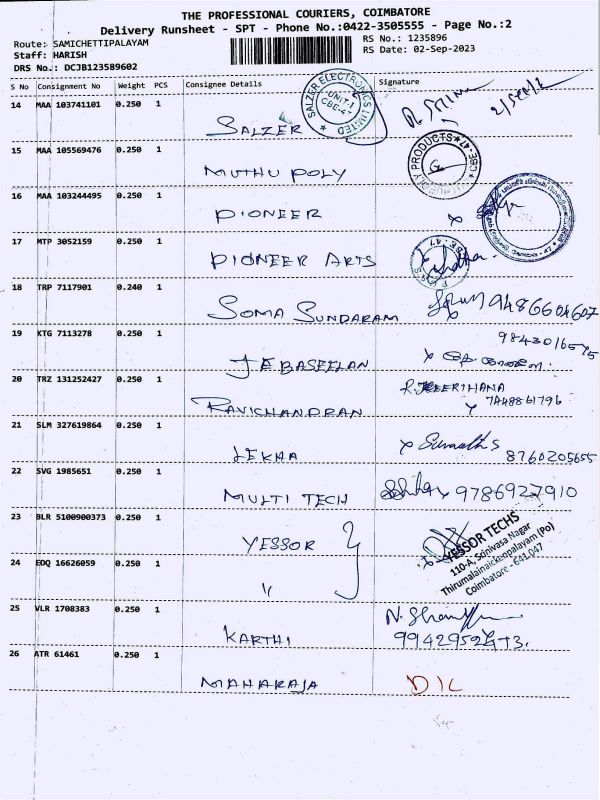 THE PROFESSIONAL COURIERS, COIMBATORE
Delivery Runsheet - SPT - Phone No.:0422-3505555 - Page No.:2
Route: SAMICHETTIPALAYAM
RS No.: 1235896
Staff: HARISH
RS Date: 02-Sep-2023
DRS No.: DCJB123589602
S No Consignment No Weight PCS Consignee Details Signature
14 MAA 103741101 0.250 1 SALZER
SALZER ELECTRONICS LIMITED UNIT-I CBE-47
15 MAA 105569476 0.250 1 MUTHU POLY
POLY PRODUCTS CBE-47
16 MAA 103244495 0.250 1 PIONEER
17 MTP 3052159 0.250 1 PIONEER ARTS
18 TRP 7117901 0.240 1 SOMA SUNDARAM 9486604607
19 KTG 7113278 0.250 1 JEBASEELAN 9843016575
20 TRZ 131252427 0.250 1 RAVICHANDRAN R.KEERTHANA 7448861796
21 SLM 327619864 0.250 1 LEKHA 8760205655
22 SVG 1985651 0.250 1 MULTI TECH 9786927910
23 BLR 5100900373 0.250 1 YESSOR
YESSOR TECHS
110-A, Srinivasa Nagar
Thirumalainaickenpalayam (Po)
Coimbatore - 641 047
24 EDQ 16626059 0.250 1 "
25 VLR 1708383 0.250 1 KARTHI
26 ATR 61461 0.250 1 MAHARAJA DIL